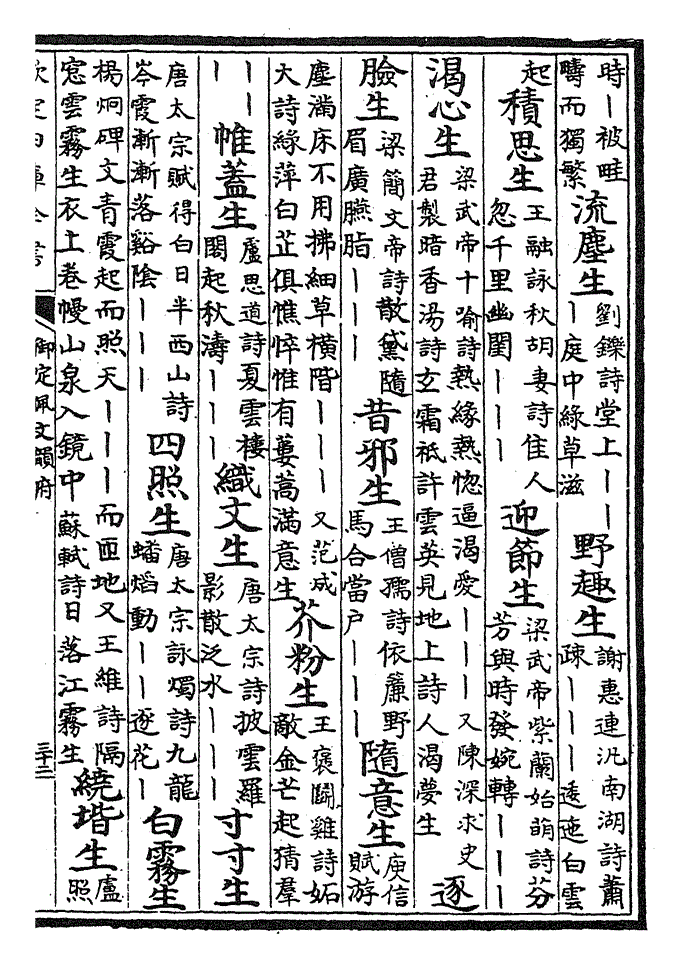 時丨被畦
疇而獨繁
流塵生
劉鑠詩堂上丨丨
丨庭中綠草滋
野趣生
謝惠連汎南湖詩蕭
疎丨丨丨逶迤白雲
起
積思生
王融詠秋胡妻詩佳人
忽千里幽閨丨丨丨
迎節生
梁武帝紫蘭始萌詩芬
芳與時發婉轉丨丨丨
渴心生
梁武帝十喻詩熱緣熱惚逼渴愛丨丨丨又陳深求史
君製暗香湯詩玄霜祗許雲英見地上詩人渴夢生
逐
臉生
梁簡文帝詩散黛隨
眉廣臙脂丨丨丨
昔邪生
王僧孺詩依簾野
馬合當户丨丨丨
隨意生
庾信
賦游
塵滿床不用拂細草橫階丨丨丨又范成
大詩綠萍白芷俱憔悴惟有蔞蒿滿意生
芥粉生
王褒鬬雞詩妬
敵金芒起猜羣
丨丨
丨
帷蓋生
盧思道詩夏雲樓
閣起秋濤丨丨丨
織文生
唐太宗詩披雲羅
影散泛水丨丨丨
寸寸生
唐太宗賦得白日半西山詩
岑霞漸漸落谿陰丨丨丨
四照生
唐太宗詠燭詩九龍
蟠熖動丨丨逐花丨
白霧生
楊炯碑文青霞起而照天丨丨丨而匝地又王維詩隔
窓雲霧生衣上卷幔山泉入鏡中蘇軾詩日落江霧生
繞堦生
盧
照
欽定四庫全書
御定佩文韻府
三十二